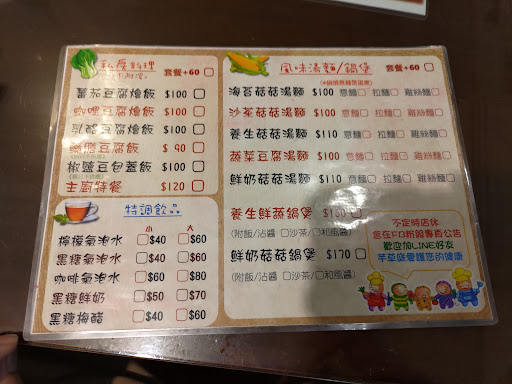 私房料理
套餐+60 □
蕃茄豆腐燴飯 $100 □
咖哩豆腐燴飯 $100 □
乳酪豆腐燴飯 $100 □
豆腐飯 $90 □
椒鹽豆包蓋飯 $100 □
主廚特餐 $120 □
特調飲品
小 大
檸檬氣泡水 □$40 □$60
黑糖氣泡水 □$40 □$60
咖啡氣泡水 □$60 □$80
黑糖鮮奶 □$50 □$70
黑糖梅醋 □$40 □$60
風味湯麵/鍋煲
套餐+60 □
海苔菇菇湯麵 $100 意麵□ 拉麵□ 雞絲麵□
沙茶菇菇湯麵 $100 意麵□ 拉麵□ 雞絲麵□
養生菇菇湯麵 $110 意麵□ 拉麵□ 雞絲麵□
蔬菜豆腐湯麵 $100 意麵□ 拉麵□ 雞絲麵□
鮮奶菇菇湯麵 $110 意麵□ 拉麵□ 雞絲麵□
養生鮮菇鍋煲 $150 □
(附飯/沾醬 □沙茶/□和風醬)
鮮奶菇菇鍋煲 $170 □
(附飯/沾醬 □沙茶/□和風醬)
不定時店休
會在FB粉絲專頁公告
歡迎加LINE好友
芊草庭愛護您的健康